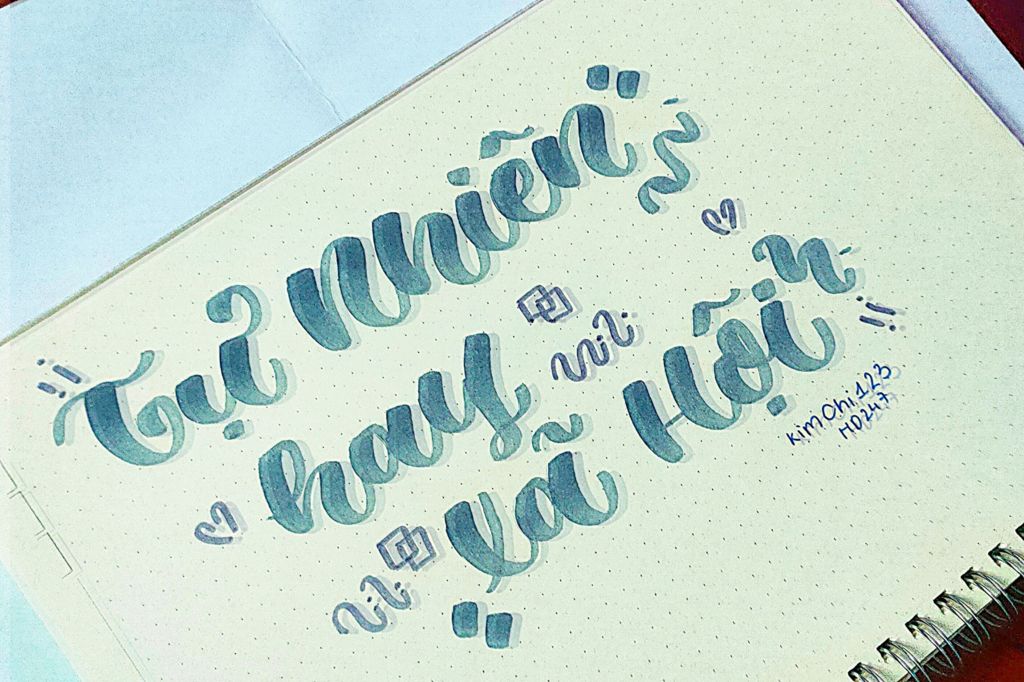 Tự Nhiên
hay
Xã Hội
KimChi123
HD247